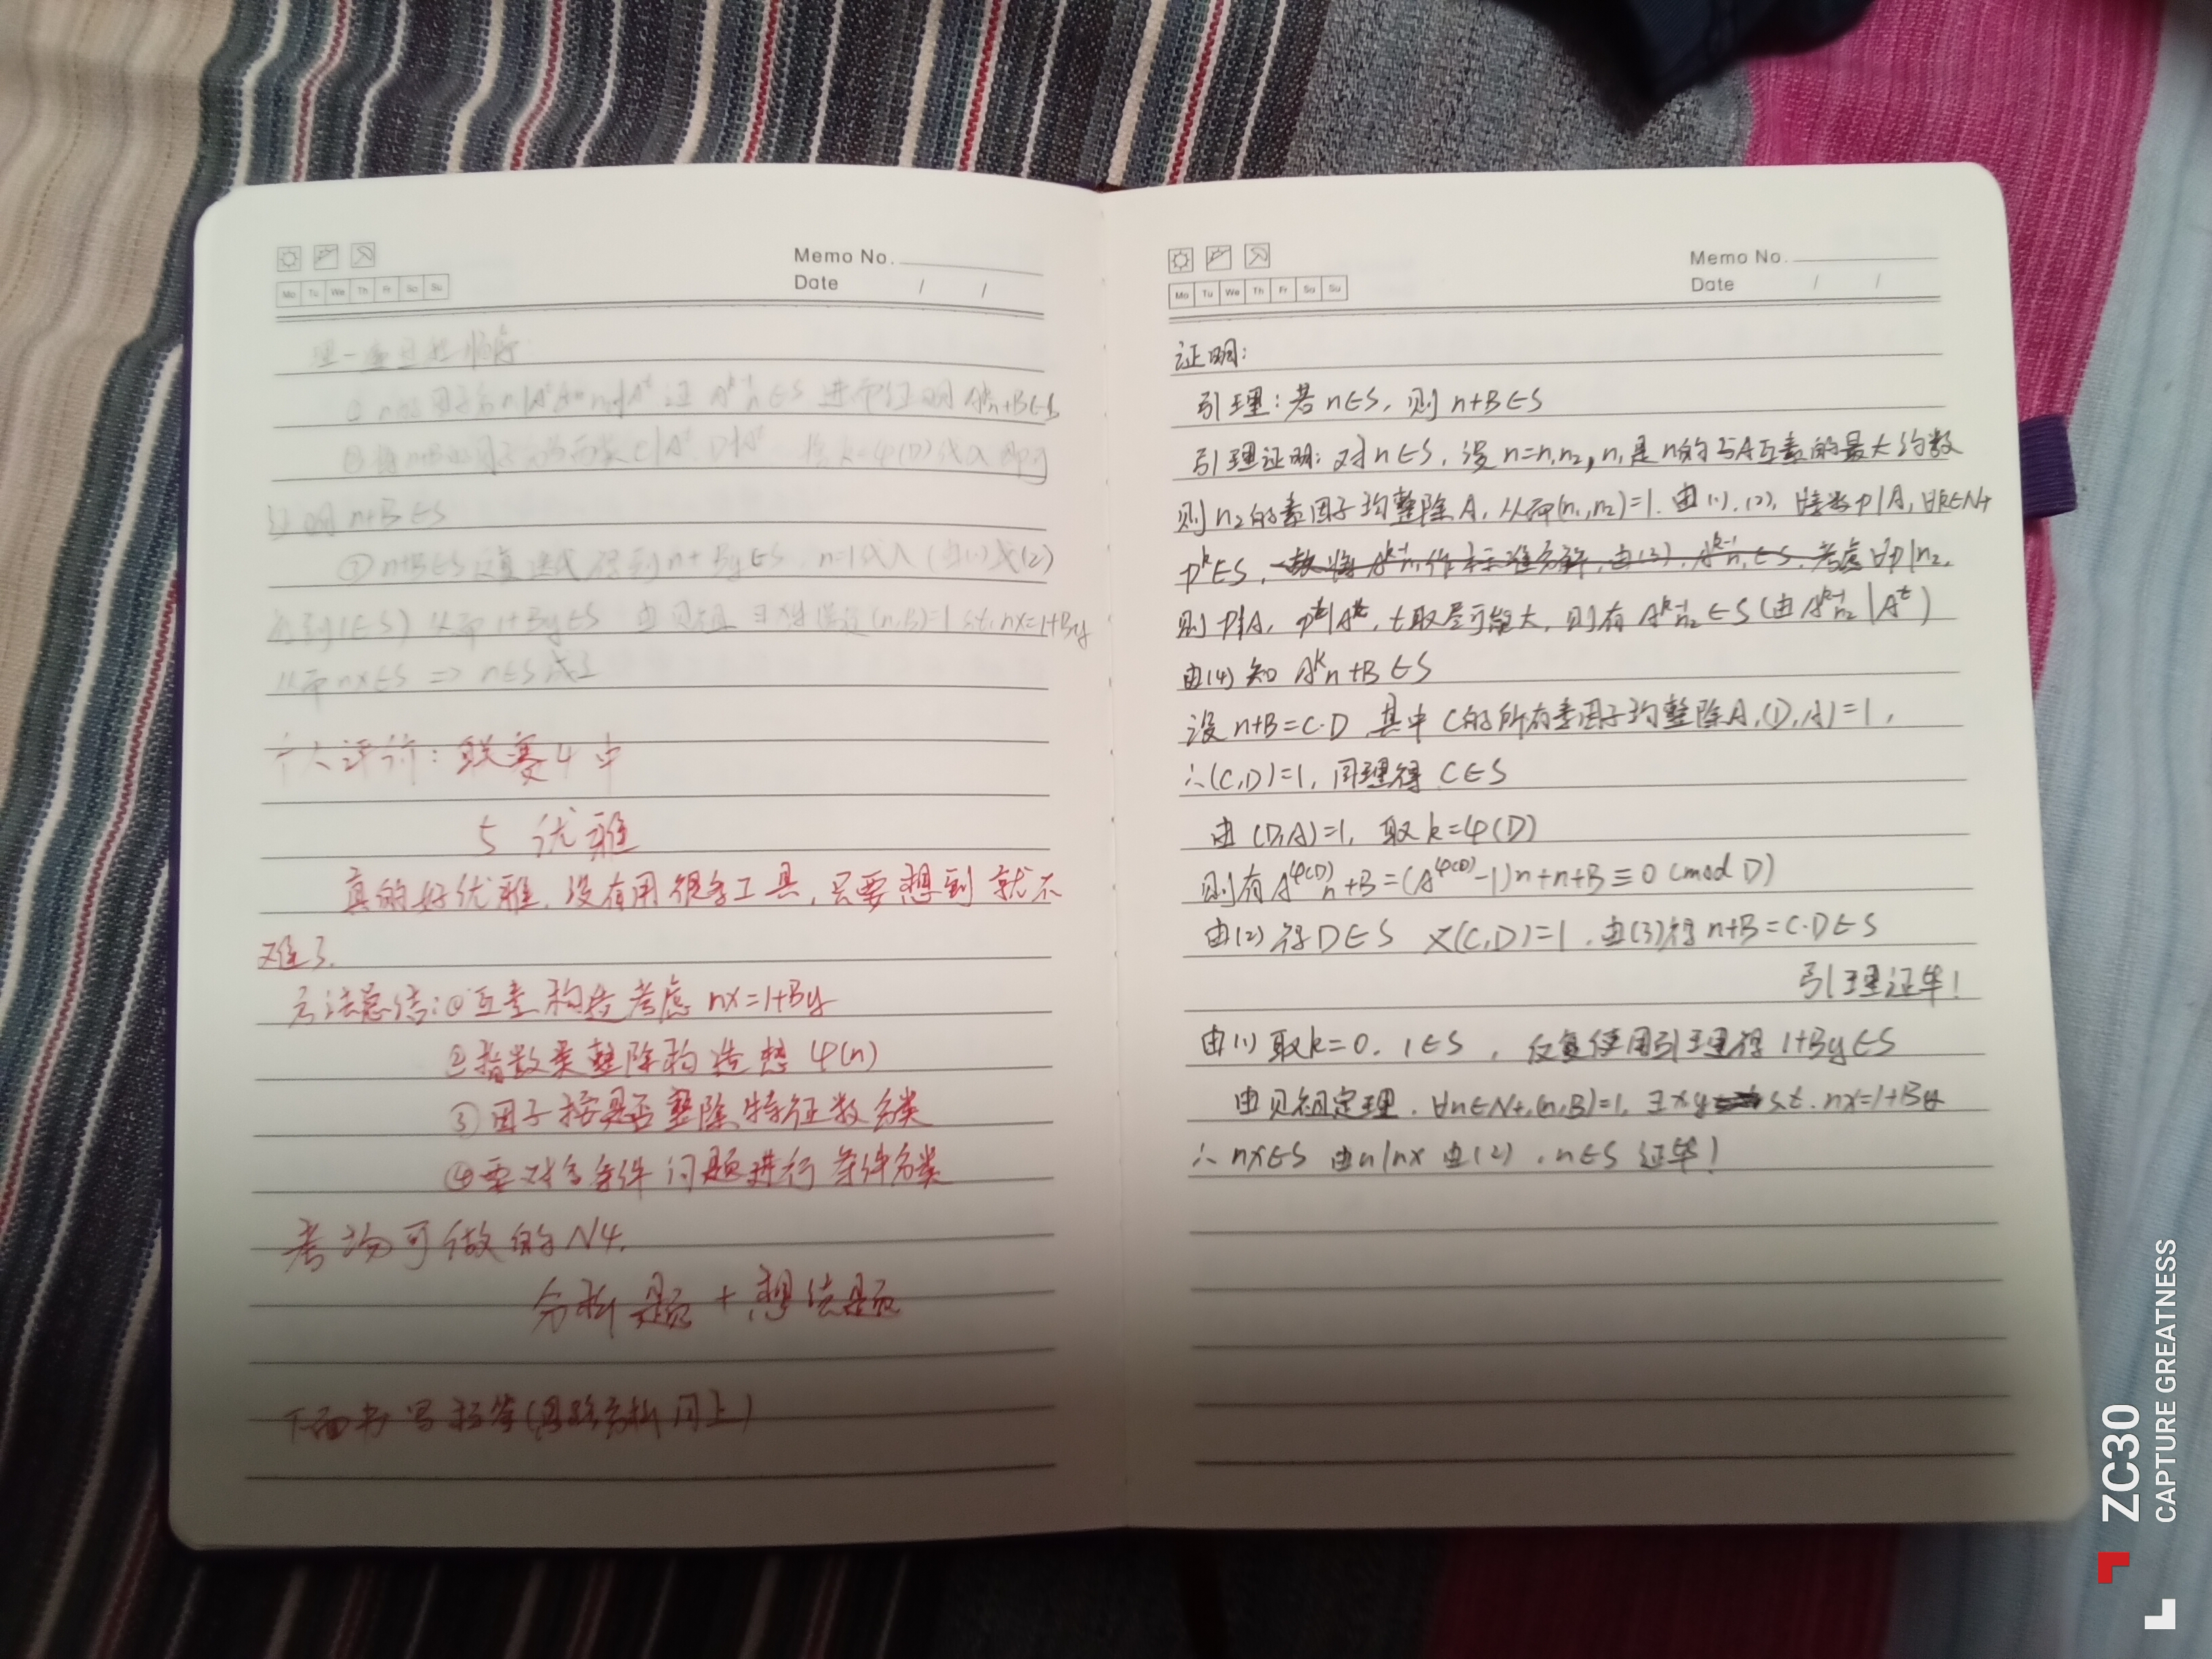 Memo No.
Mo Tu We Th Fr Sa Su
Date / /
理一遍过程顺序
证明n+B∈S
②n+B∈S反复迭代得到n+By∈S, n=1代入(由(1)或(2)
得到1∈S) 从而1+By∈S 由贝祖 (n,B)=1 s.t. nx=1+By
从而nx∈S ⇒ n∈S成立
个人评价: 联赛4中
5 优雅
真的好优雅, 没有用很多工具, 只要想到就不
难了.
方法总结:①互素构造考虑 nx=1+By
②指数类整除构造想 φ(n)
③因子按是否整除特征数分类
④要对多条件问题进行条件分类
考场可做的N4.
分析题+想法题
下面书写超等(思路分析同上)
Memo No.
Mo Tu We Th Fr Sa Su
Date / /
证明:
引理: 若n∈S, 则 n+B∈S
引理证明: 对n∈S, 设n=n₁n₂, n₁是n的与A互素的最大约数
则n₂的素因子均整除A, 从而(n₁,n₂)=1. 由(1).(2), ∀素数p|A, ∀k∈N+
p^k∈S, 考虑∀p|n₂,
则p|A, t取尽可能大, 则有A^{k-1}n₂∈S(由A^{k-1}n₂|A^t)
由(4)知 A^k n+B∈S
设n+B=C·D 其中C的所有素因子均整除A,(D,A)=1,
∴(C,D)=1, 同理得 C∈S
由(D,A)=1, 取k=φ(D)
则有A^{φ(D)}n+B=(A^{φ(D)}-1)n+n+B≡0(mod D)
由(2)得D∈S 又(C,D)=1, 由(3)得n+B=C·D∈S
引理证毕!
由(1)取k=0, 1∈S, 反复使用引理得 1+By∈S
由贝祖定理, ∀n∈N+,(n,B)=1, ∃x,y s.t. nx=1+By
∴nx∈S 由n|nx 由(2), n∈S 证毕!
ZC30
CAPTURE GREATNESS